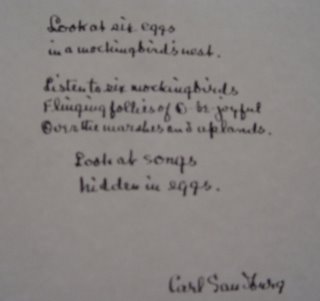 Look at six eggs
in a mockingbird's nest.
Listen to six mockingbirds
Flinging follies of O-be-joyful
Over the marshes and uplands.
Look at songs
hidden in eggs.
Carl Sandburg